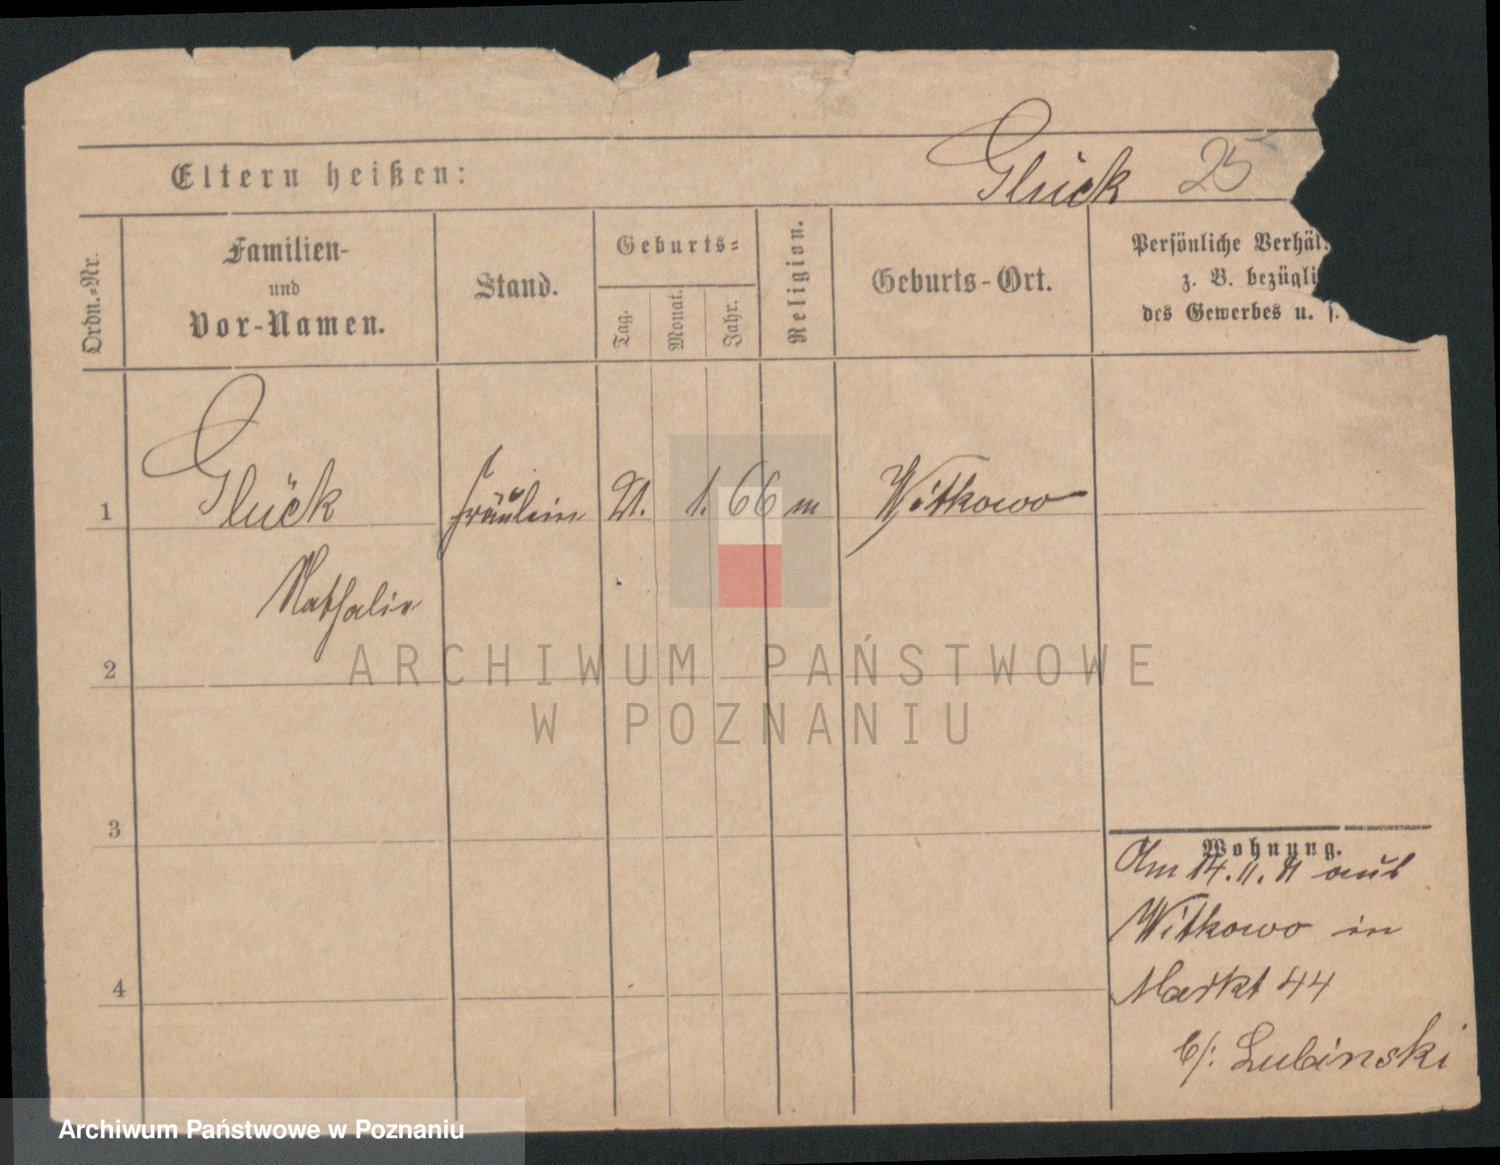 Glück 25
Eltern heißen:
Ordn.-Nr.
Familien-
und
Vor-Namen.
Stand.
Geburts-
Tag.
Monat.
Jahr.
Religion.
Geburts-Ort.
Persönliche Verhäl
z. B. bezügli
des Gewerbes u. s.
1 Glück Fräulein 21. 1. 66 m Witkowo
Nathalie
2
3
4
Wohnung.
Am 14. 11. 91 aus
Witkowo in
Markt 44
b/: Lubinski
ARCHIWUM PAŃSTWOWE
W POZNANIU
Archiwum Państwowe w Poznaniu